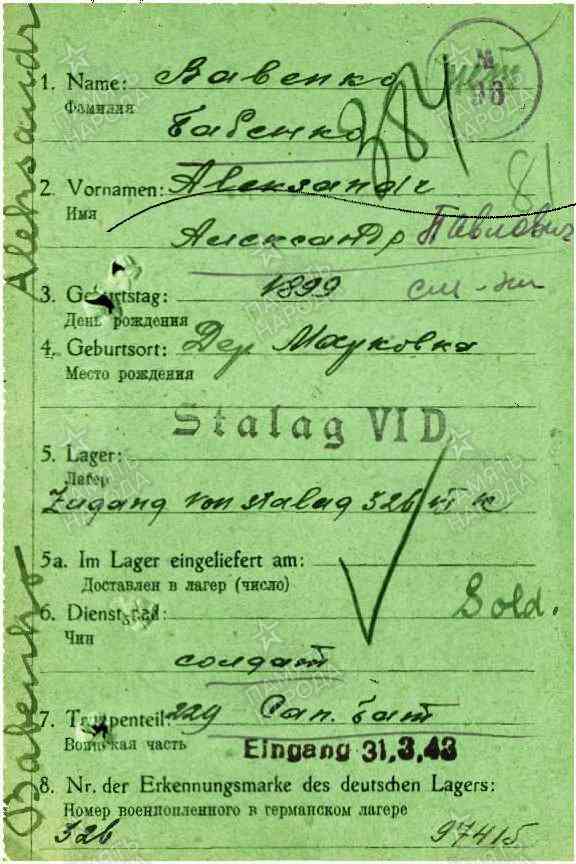 №
96
1. Name: Бабенко
Фамилия
Бабенко
384
2. Vornamen: Alexandr
Имя
81
Александр Павлович
3. Geburtstag: 1899
День рождения
4. Geburtsort: Дер Мауковка
Место рождения
Stalag VI D
5. Lager:
Лагер
Zugang von stalag 326 VI K
5a. Im Lager eingeliefert am:
Доставлен в лагер (число)
6. Dienstgrad: Sold.
Чин
солдат
7. Truppenteil: 229 Сап. бат
Воинская часть
Eingang 31.3.43
8. Nr. der Erkennungsmarke des deutschen Lagers:
Номер военнопленного в германском лагере
326 97415
Babenko Aleksandr
ПАМЯТЬ НАРОДА